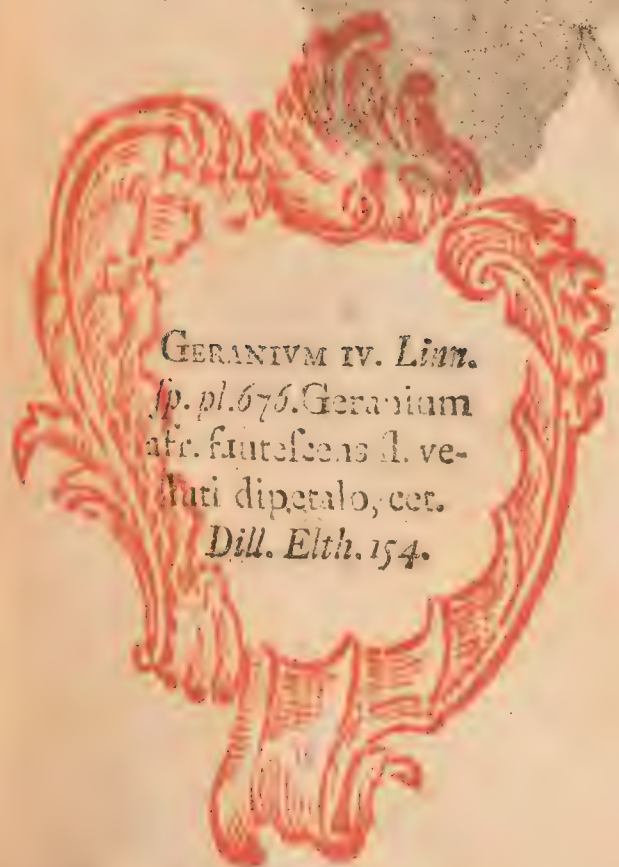 GERANIVM IV. Linn.
ſp. pl. 676. Geranium
afr. frutefcens fl. ve-
luti dipetalo, cet.
Dill. Elth. 154.